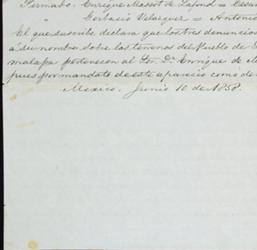 Firmado. Enrique Massot de Lafond =
" Velazquez = Antonio
El que suscribe declara que los tres denuncios
a su nombre, sobre los terrenos del Pueblo de
malapa pertenecen al Sor. Dn. Enrique de
pues por mandato de este aparecio como
Mexico. Junio 10 de 1858.